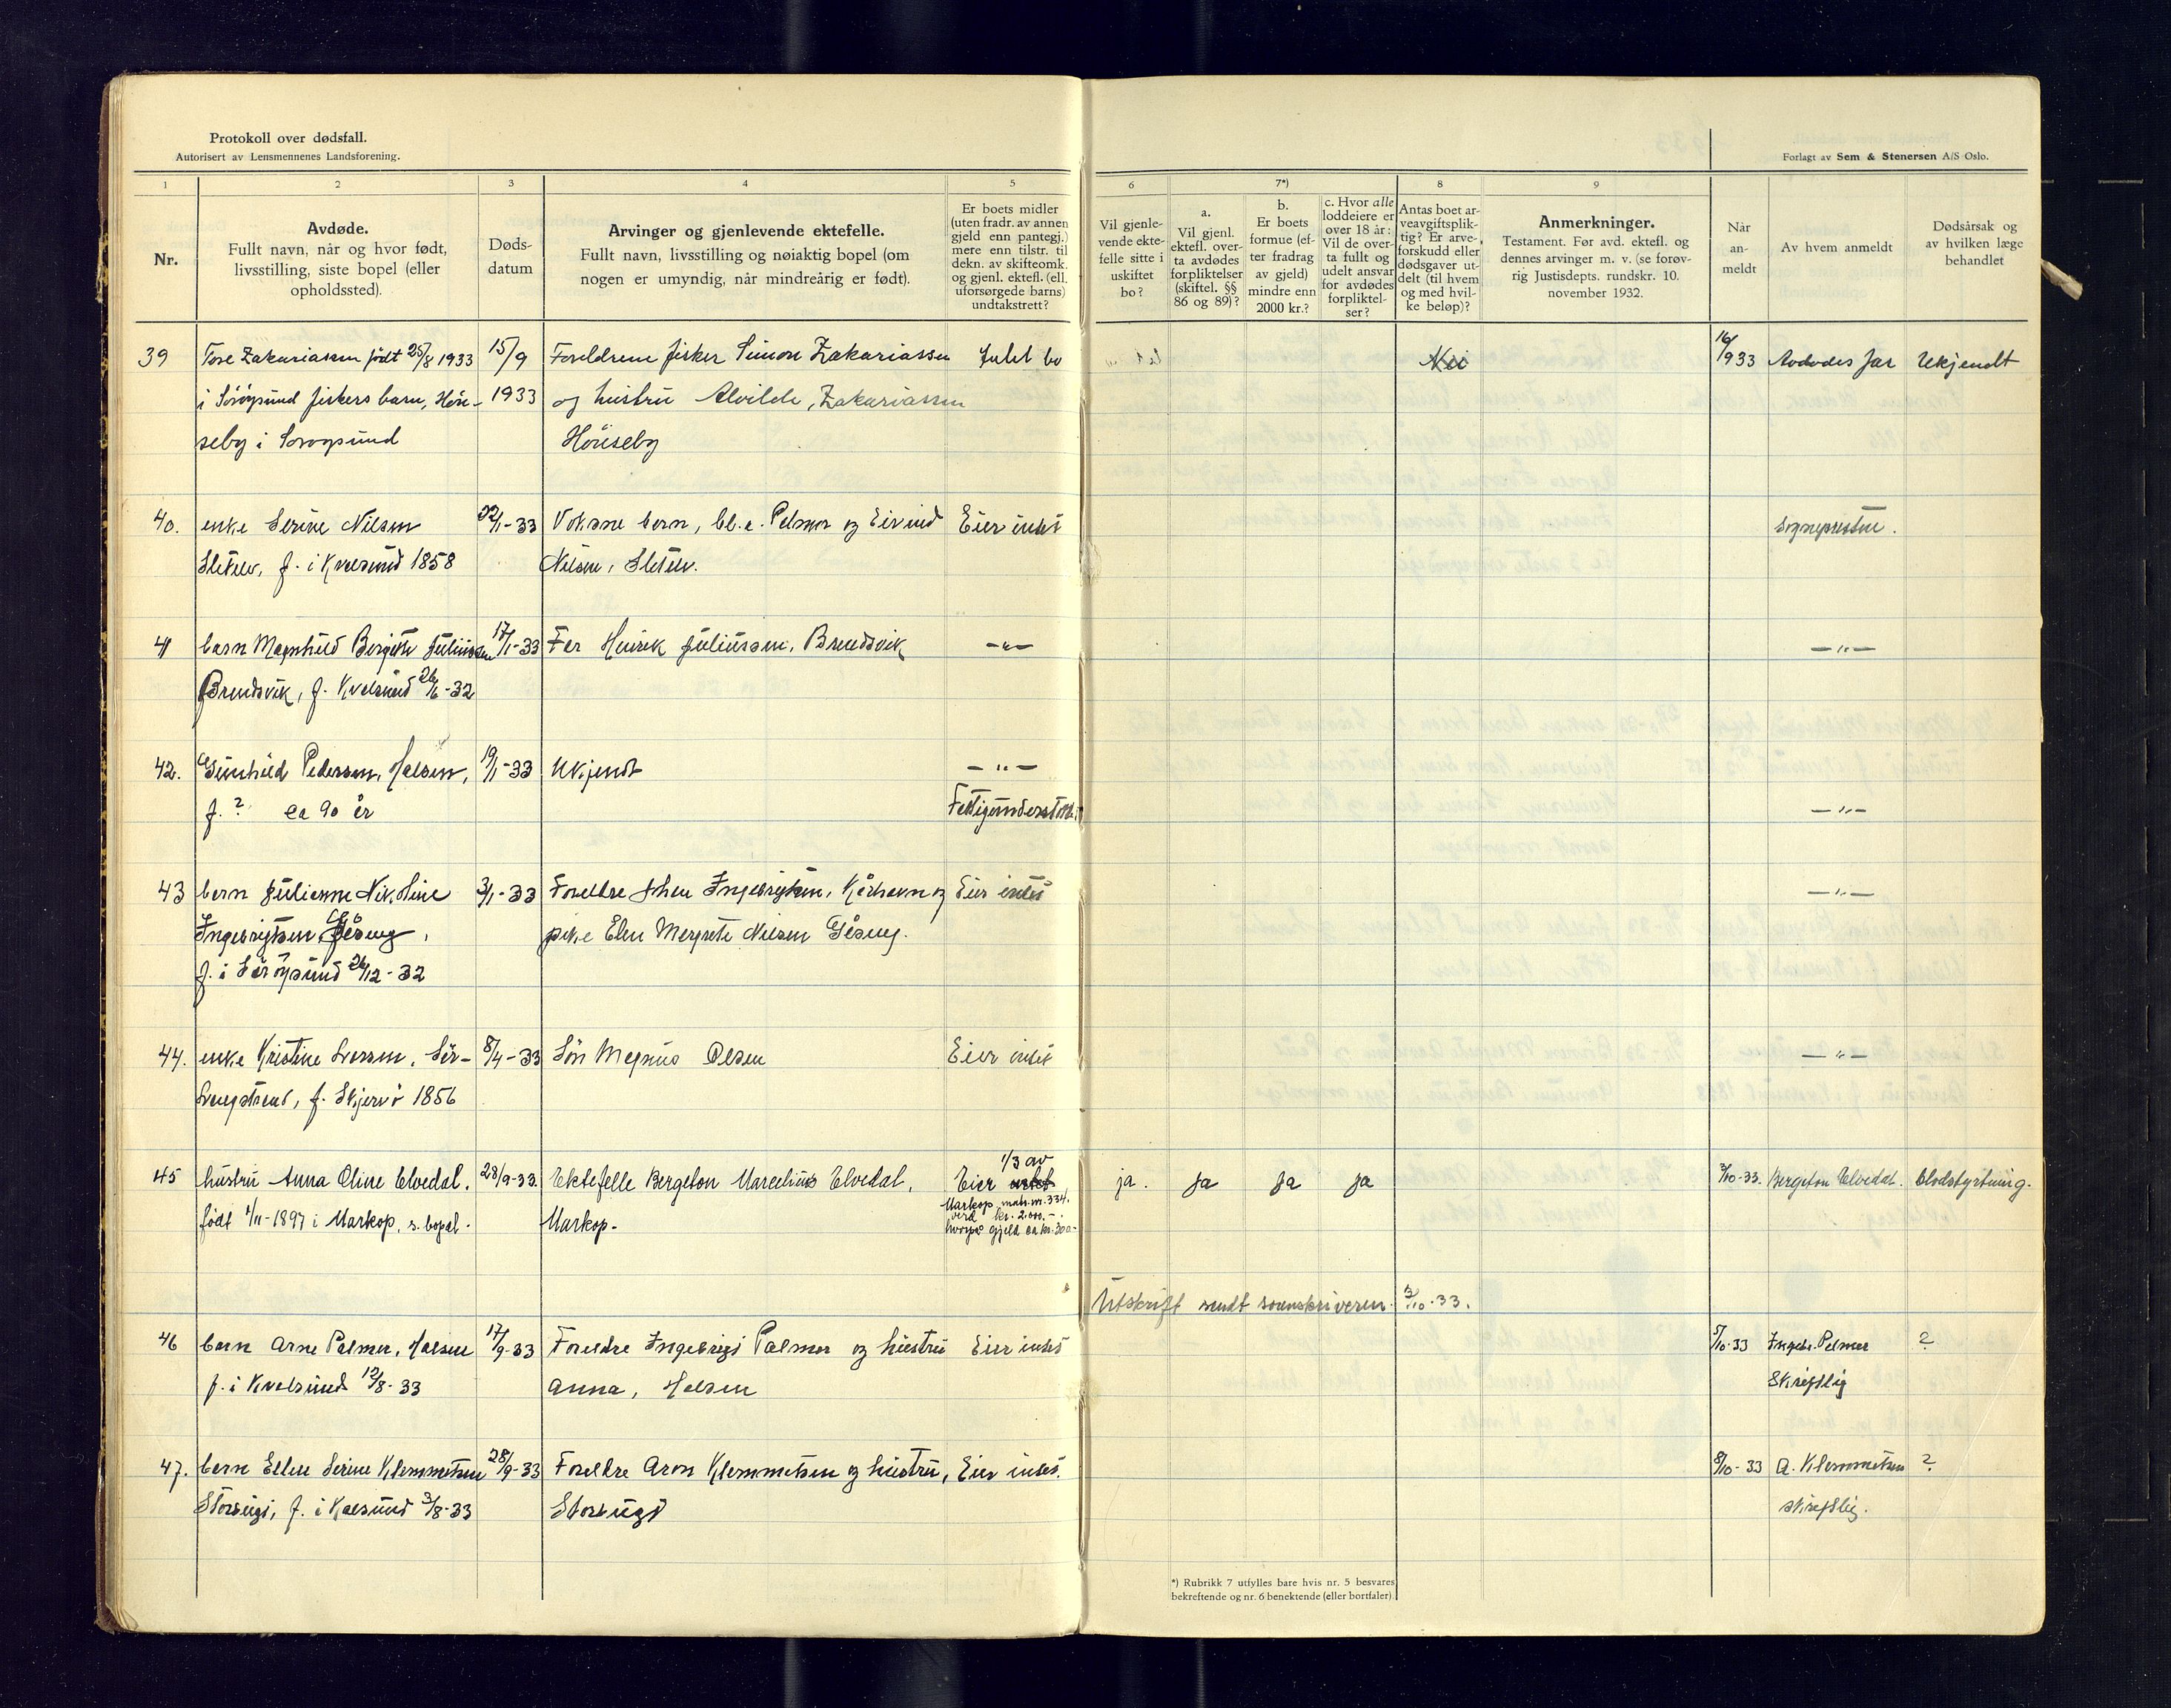 Protokoll over dødsfall.
Autorisert av Lensmennenes Landsforening.
Forlagt av Sem & Stenersen A/S Oslo.
1 2 3 4 5 6 7*) 8 9
Nr.
Avdøde.
Fullt navn, når og hvor født,
livsstilling, siste bopel (eller
opholdssted).
Døds-
datum
Arvinger og gjenlevende ektefelle.
Fullt navn, livsstilling og nøiaktig bopel (om
nogen er umyndig, når mindreårig er født).
Er boets midler
(uten fradr. av annen
gjeld enn pantegj.)
mere enn tilstr. til
dekn. av skifteomk.
og gjenl. ektef. (ell.
uforsørgede barns)
undtakstrett?
Vil gjenle-
vende ekte-
felle sitte i
uskiftet
bo?
a.
Vil gjenl.
ektefl. over-
ta avdødes
forpliktelser
(skiftel. §§
86 og 89)?
b.
Er boets
formue (ef-
ter fradrag
av gjeld)
mindre enn
2000 kr.?
c. Hvor alle
loddeiere er
over 18 år:
Vil de over-
ta fullt og
udelt ansvar
for avdødes
forpliktel-
ser?
Antas boet ar-
veavgiftsplik-
tig? Er arve-
forskudd eller
dødsgaver ut-
delt (til hvem
og med hvil-
ke beløp)?
Anmerkninger.
Testament. Før avd. ektefl. og
dennes arvinger m. v. (se forøv-
rig Justisdepts. rundskr. 10.
november 1932.
Når
an-
meldt
Av hvem anmeldt
Dødsårsak og
av hvilken læge
behandlet
39 Tore Zakariassen født 25/8 1933 15/9 Foreldrene fisker Simon Zakariassen Intet bo Nei 16/9 33 Avdødes far Ukjendt
i Sörøysund fiskers barn, Hön- 1933 og hustru Alvilde, Zakariassen
seby i Sørøysund Hönseby
40. enke Serine Nilsen 22/1-33 Voksne barn, bl.a. Palmer og Eivind Eier intet Sognepresten.
Sletelv, f. i Kvalsund 1858 Nilsen, Sletelv.
41 barn Magnhild Bergitte Juliussen 17/1-33 Far Henrik Juliussen, Brendsvik -"- -"-
Brendsvik, f. Kvalsund 26/6-32
42. Gunhild Pedersen, Halsen, 19/1-33 Ukjendt -"-
f. ? ca 90 år Fattigunderstött. -"-
43 barn Julianne Nikoline 3/1-33 Foreldre Johan Ingebrigtsen, Kårhavn og Eier intet -"-
Ingebrigtsen Gåsnes,
pike Elen Margrete Nilsen Gåsnes.
f. i Sörøysund 26/12-32
44. enke Kristine Larsen. Sör- 8/4-33 Sön Magnus Olsen Eier intet -"-
Langstrand, f. Skjervö 1856
45 hustru Anna Oline Elvedal. 28/9-33. Ektefelle Bergeton Marcelius Elvedal, Eier intet 1/3 av ja. ja ja ja 3/10-33. Bergeton Elvedal. Blodstyrtning.
født 1/11-1897 i Markop, s. bopel. Markop.
Markop matr.nr. 334.
verd kr. 2.000.-.
hvorpå gjeld ca kr. 300.-
Utskrift sendt sorenskriveren. 3/10-33.
46 barn Arne Palmer, Halsen 17/9-33 Foreldre Ingebrigt Palmer og hustru Eier intet 5/10-33 Ingebr. Palmer ?
f. i Kvalsund 12/8-33 Anna, Halsen Skriftlig
47. barn Ellen Serine Klemmetsen 28/9-33 Foreldre Aron Klemmetsen og hustru, Eier intet. 8/10-33 A. Klemmetsen ?
Storbugt, f. i Kvalsund 3/8-33 Storbugt skriftlig.
*) Rubrikk 7 utfylles bare hvis nr. 5 besvares
bekreftende og nr. 6 benektende (eller bortfaler).